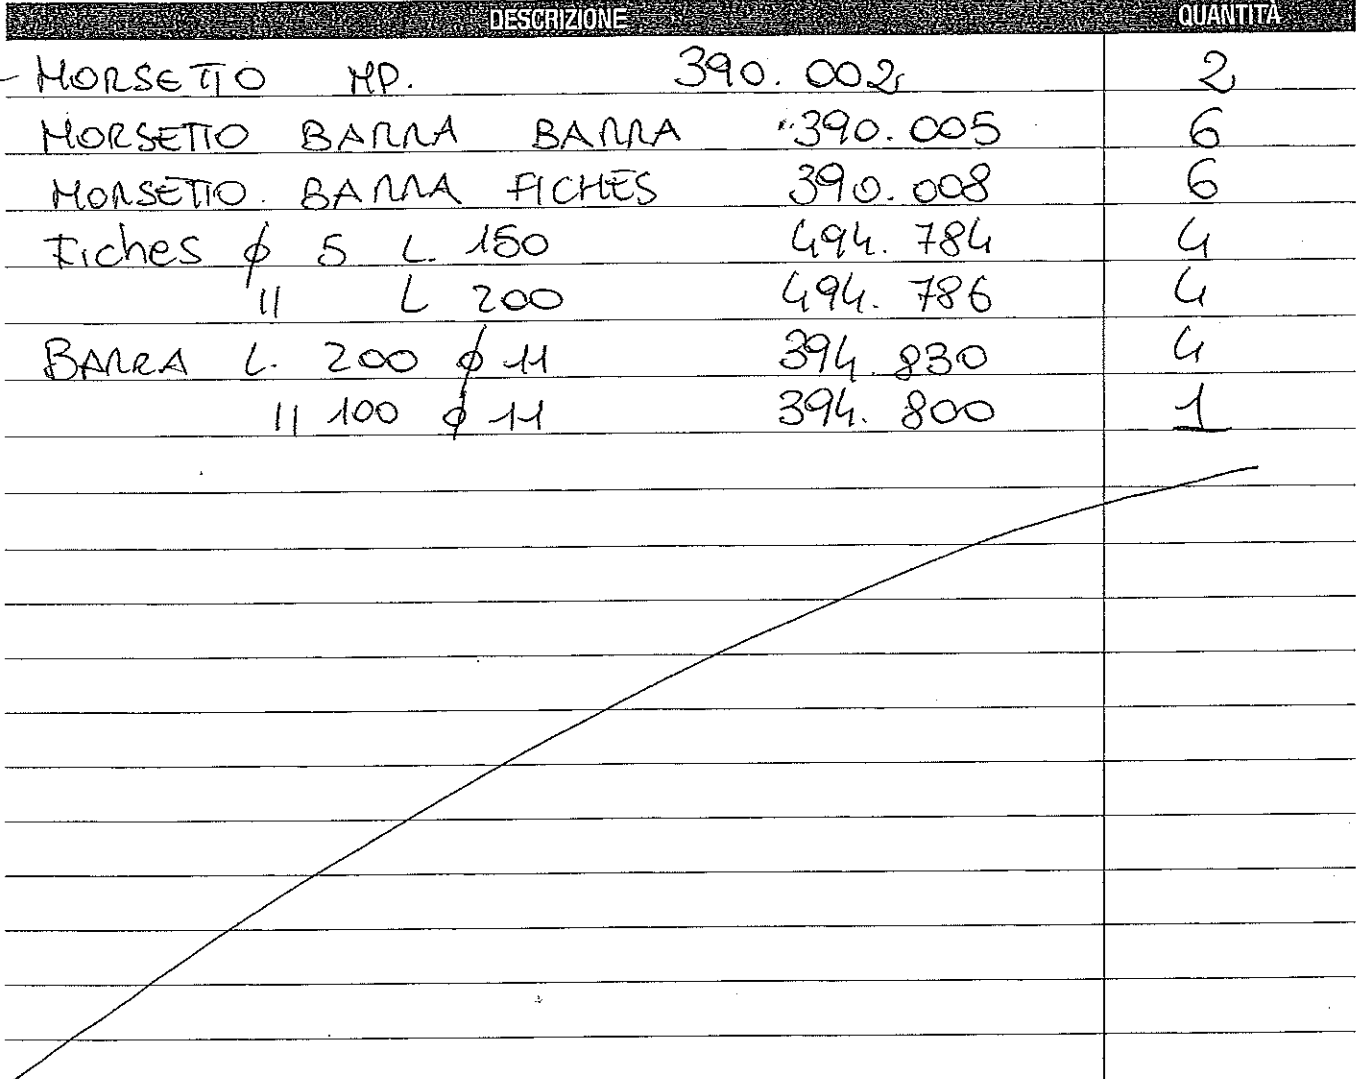 DESCRIZIONE QUANTITÀ
- MORSETTO MP. 390.002 2
MORSETTO BARRA BARRA 390.005 6
MORSETTO BARRA FICHES 390.008 6
Fiches ϕ 5 L. 150 494.784 4
" L 200 494.786 4
BARRA L. 200 ϕ 11 394.830 4
" 100 ϕ 11 394.800 1